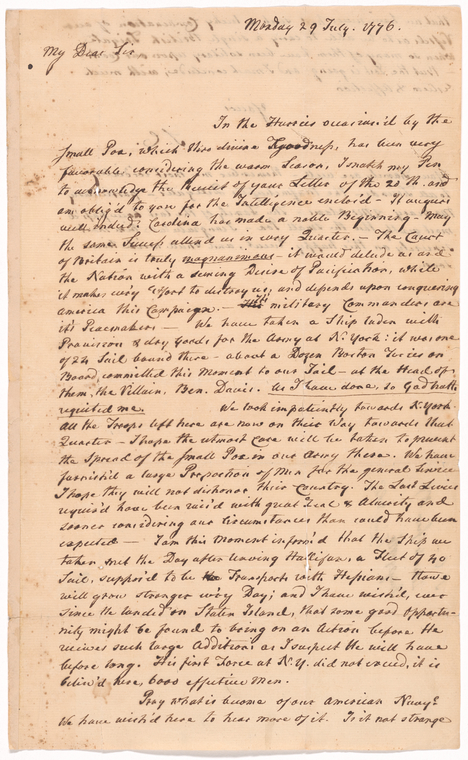 Monday 29 July. 1776.
My Dear Sir
In the Hurries occasion'd by the
Small Pox, which thro divine goodness, has been very
favorable considering the warm Season, I snatch my Pen
to acknowledge the Receit of your Letter of the 20th. and
am oblig'd to you for the Intelligence enclos'd - It augurs
well indeed: Carolina has made a noble Beginning - May
the same Success attend us in evry Quarter. - The Court
of Britain is truly magnanimous - it would delude us and
the Nation with a seming Desire of Pacification, while
it makes evry Effort to destroy us, and depends upon conquering
America this Campaign. - military Commanders are
it's Peacemakers - We have taken a Ship laden with
Provisions & dry Goods for the Army at N. York: it was one
of 24 Sail bound there - about a Dozen Boston Tories on
Board, committed this Moment to our Jail - at the Head of
them, the Villain, Ben. Davis. As I have done, so God hath
requited me. We look impatiently towards N. York
All the Troops left here are now on their Way towards that
Quarter - I hope the utmost Care will be taken to prevent
the Spread of the Small Pox in our Army there. We have
furnish'd a large Proportion of Men for the general Service
I hope they will not dishonor their Country. The Last Levies
requir'd have been rais'd with great Zeal & Alacrity and
sooner considering our Circumstances than could have been
expected - I am this Moment inform'd that the Ship we
taken, met the Day after leaving Hallifax, a Fleet of 40
Sail, suppos'd to be Transports with Hessians - Howe
will grow stronger evry Day; and I have wish'd, ever
since he landed on Staten Island, that some good Opportu-
nity might be found to bring on an Action before He
recives such large Additions as I suspect He will have
before long. His first Force at N.Y. did not exceed, it is
beliv'd here 6000 effective Men.
Pray what is become of our American Navy?
We have wish'd here to hear more of it. Is it not strange